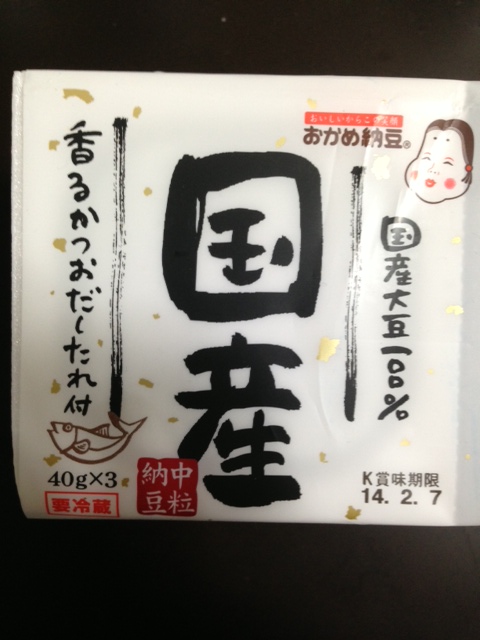 おいしいからこの笑顔
おかめ納豆®
国産大豆一〇〇%
国産
香るかつおだしたれ付
40g×3
要冷蔵
中粒
納豆
K賞味期限
14. 2. 7